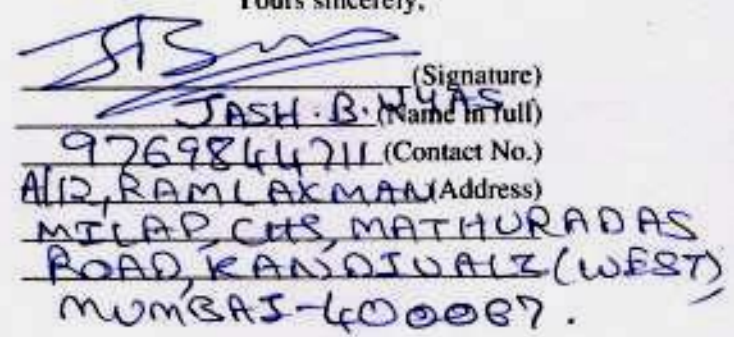 Yours sincerely,
(Signature)
JASH. B. VYAS (Name in full)
9769844711 (Contact No.)
A/12, RAMLAXMAN (Address)
MILAP, CHS, MATHURADAS
ROAD, KANDIVALI (WEST)
MUMBAI-400067.